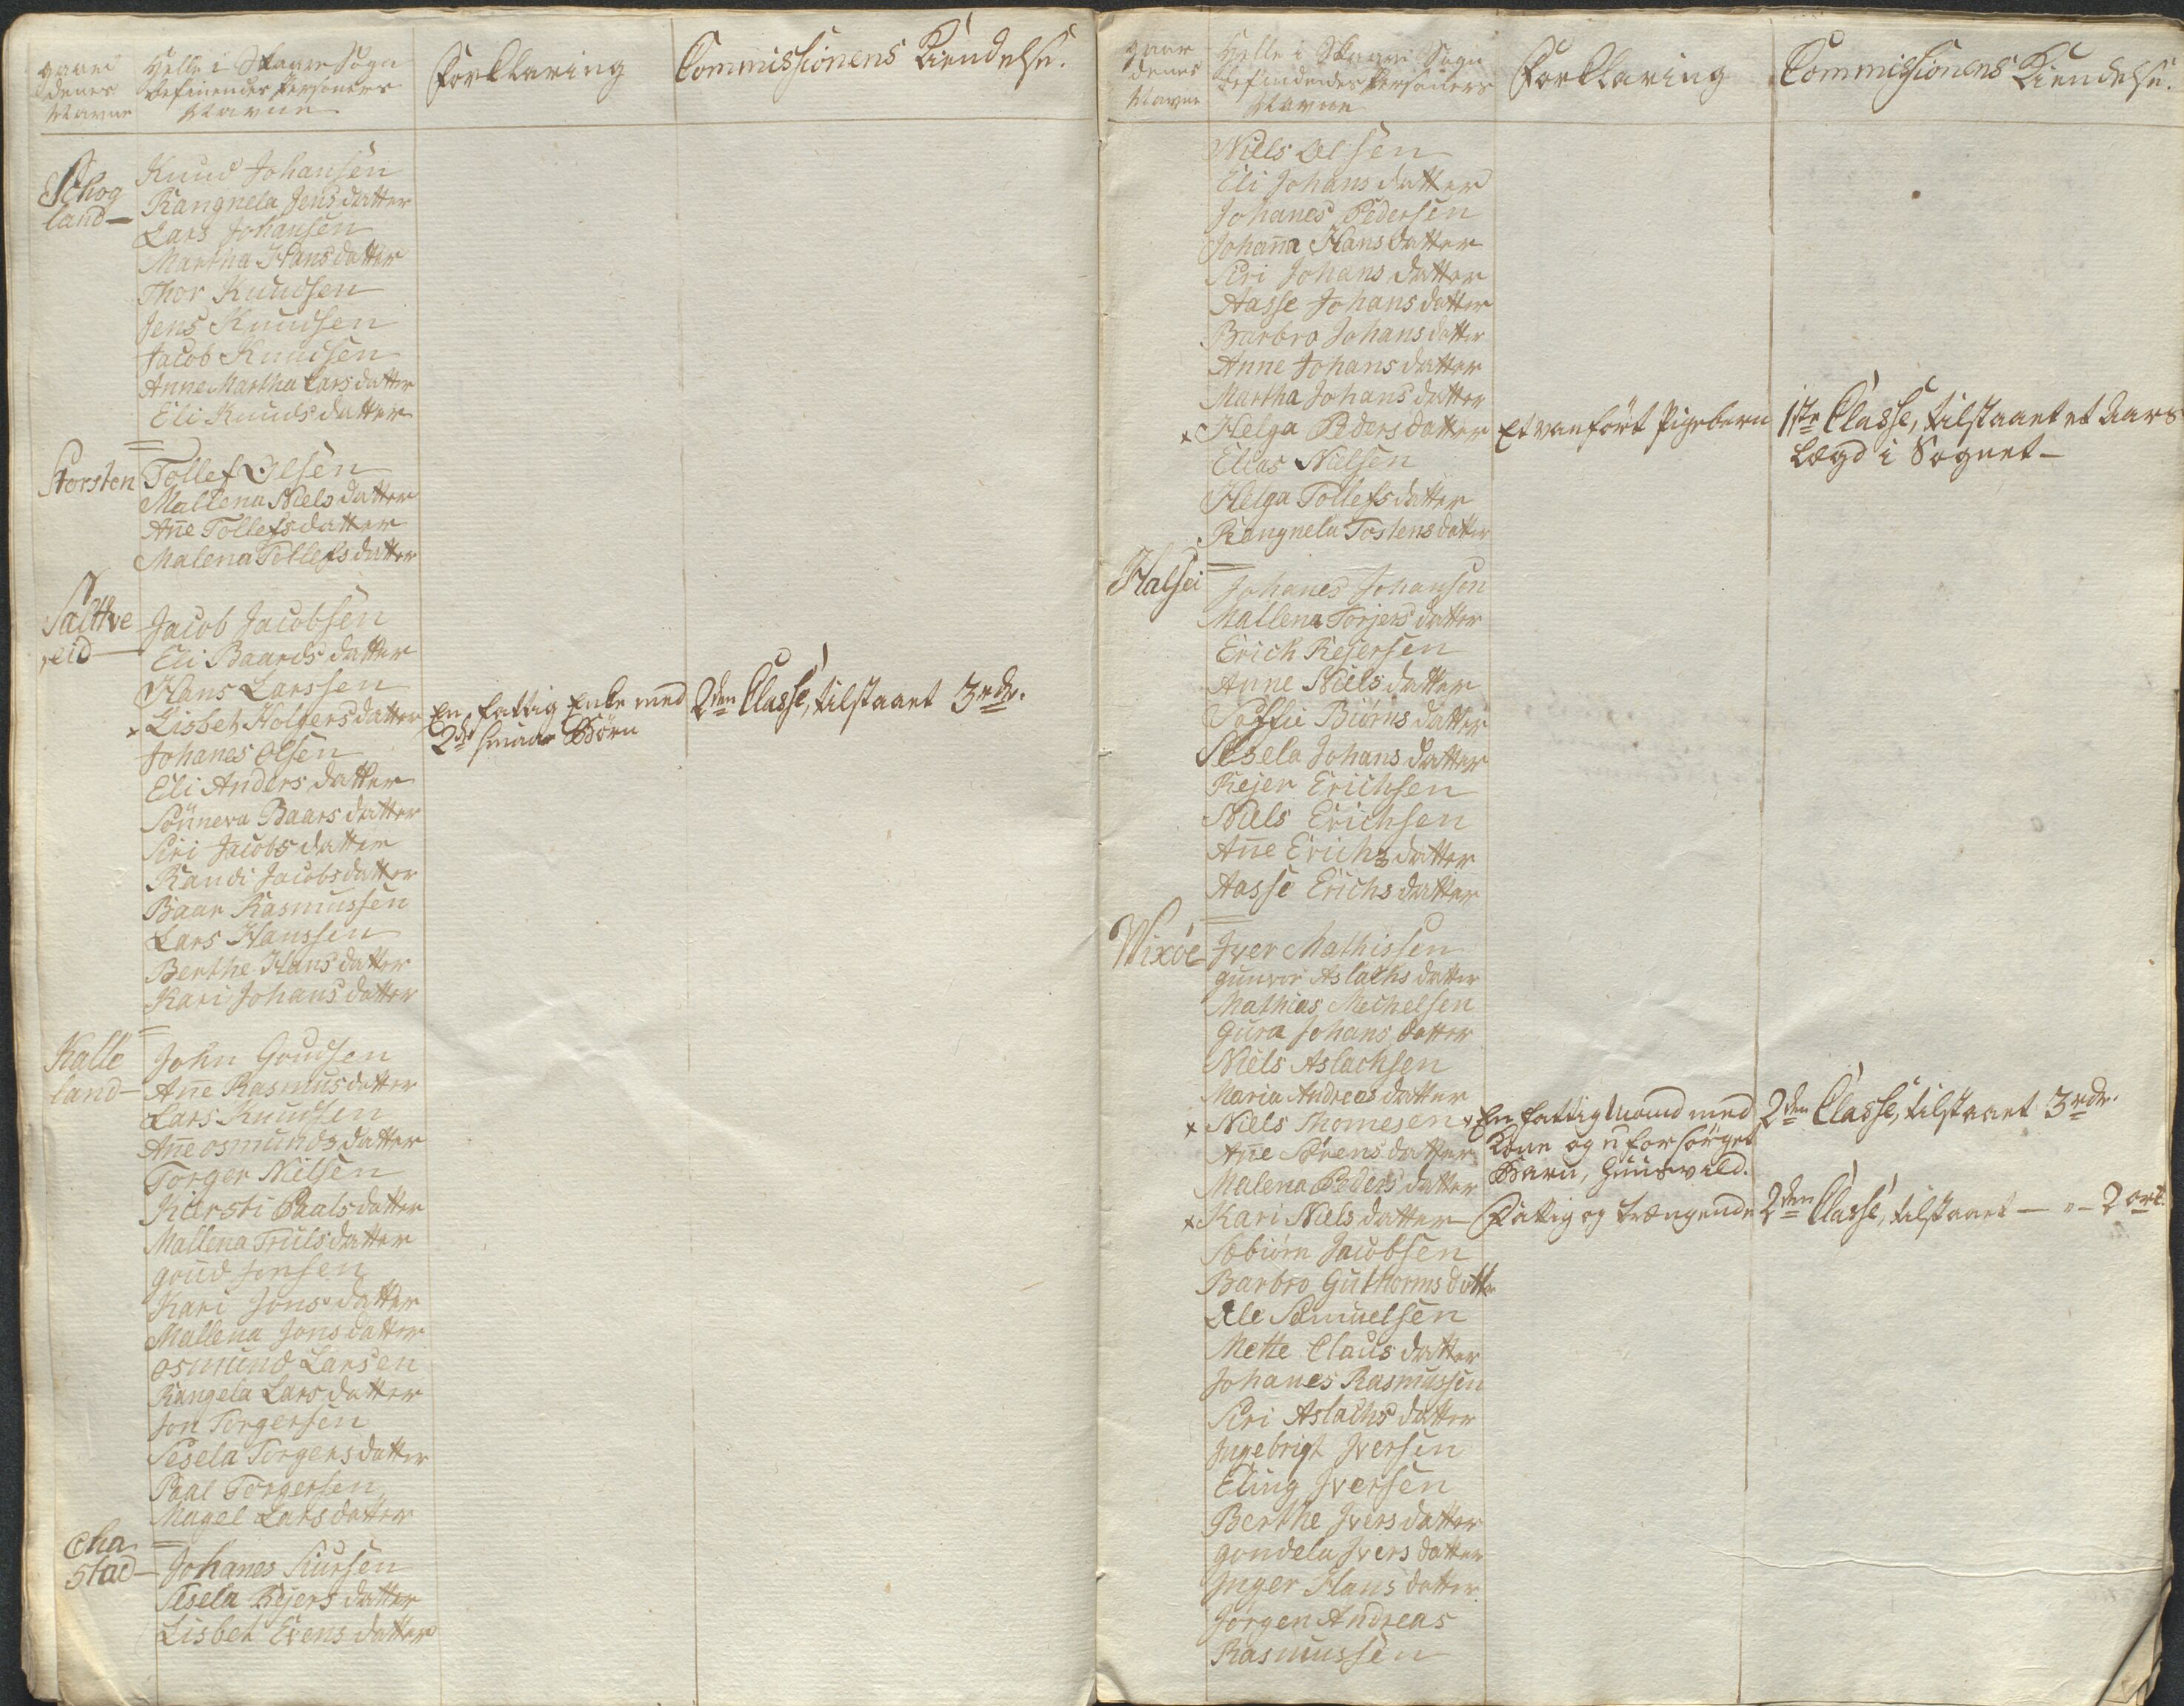 Gaard
denes
Navne
Helle i Skaare Sogn
befinendes Personers
Navne
Forklaring
Commissionens Kiendelse.
Schog
land—
Knud Johansen
Rangnela Jensdatter
Lars Johansen
Martha Hansdatter
Thor Knudsen
Jens Knudsen
Jacob Knudsen
Anne Martha Larsdatter
Eli Knudsdatter
Storsten
Tollef Olsen
Mallena Nielsdatter
Añe Tollefsdatter
Malena Tollefsdatter
Salthve
eid—
Jacob Jacobsen
Eli Baardsdatter
Hans Larssen
x Lisbet Holgersdatter
En fattig Enke med
2de smaae Børn
2den Classe, tilstaaet 3 rdr.
Johanes Olsen
Eli Andersdatter
Sønneva Baarsdatter
Siri Jacobsdatter
Randi Jacobsdatter
Baar Rasmussen
Lars Hanssen
Berthe Hansdatter
Kari Johansdatter
Kalle
land—
John Goudsen
Añe Rasmusdatter
Lars Knudsen
Añe osmundsdatter
Torger Nilsen
Kirsti Paalsdatter
Mallena Trulsdatter
goud Jonsen
Kari Jonsdatter
Mallena Jonsdatter
osmund Larsen
Rangela Larsdatter
Jon Torgersen
Sesela Torgersdatter
Paal Torgersen
Magel Larsdatter
stad—
Johanes Siursen
Sesela Rejersdatter
Lisbet Evensdatter
Gaar
denes
Navne
Helle i Skaare Sogn
befindendes Personers
Navne
Forklaring
Commissionens Kiendelse.
Niels Olsen
Eli Johansdatter
Johanes Pedersen
Johaña Hansdatter
Siri Johansdatter
Aasse Johansdatter
Barbro Johansdatter
Anne Johansdatter
Martha Johansdatter
x Helga Pedersdatter
Et vanført Pigebarn
1ste Classe, tilstaaet et Aars
Lægd i Sognet—
Elias Nielsen
Helga Tollefsdatter
Rangnela Tostensdatter
Halsei
Johanes Johansen
Mallena Torjersdatter
Erick Rejersen
Anne Nielsdatter
Soffie Biørnsdatter
Sesela Johansdatter
Rejer Erichsen
Niels Erichsen
Añe Erichsdatter
Aasse Erichsdatter
Wixöe
Jver Mathissen
gunvor Aslachsdatter
Mathias Mechelsen
Gura Johansdatter
Niels Aslachsen
Maria Andreasdatter
x Niels Thomesen
En fattig Mand med
Kone og uforsørget
Barn,
2den Classe, tilstaaet 3 rdr.
Añe Sørensdatter
Malena Pedersdatter
x Kari Nielsdatter
Fattig og trængende
2den Classe, tilstaaet — " — 2 ort.
Sebiörn Jacobsen
Barbro Guthormsdatter
Ole Samuelsen
Mette Clausdatter
Johanes Rasmussen
Siri Aslachsdatter
Jngebrigt Jversen
Eling Jversen
Berthe Jversdatter
gondela Jversdatter
Jnger Hansdatter
Jörgen Andreas
Rasmussen